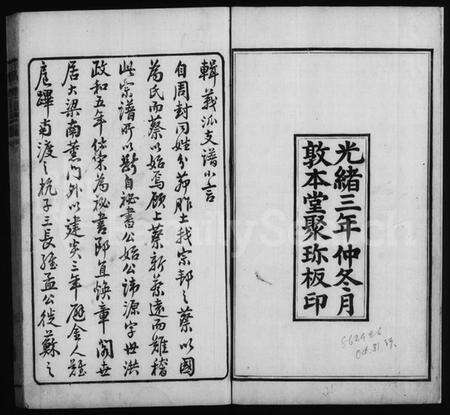 光緒三年仲冬月
敦本堂聚珍板印
輯義派支譜小言
自周封同姓分茆胙土我宗邦之蔡以國
為氏而蔡以始焉顧上蔡新蔡遠而難稽
此宗譜所以斷自祕書公始公諱源字世洪
政和五年仕宋為祕書郎直煥章閣世
居大梁南薰門外以建炎三年
扈蹕南渡之杭子三長維孟公從蘇之